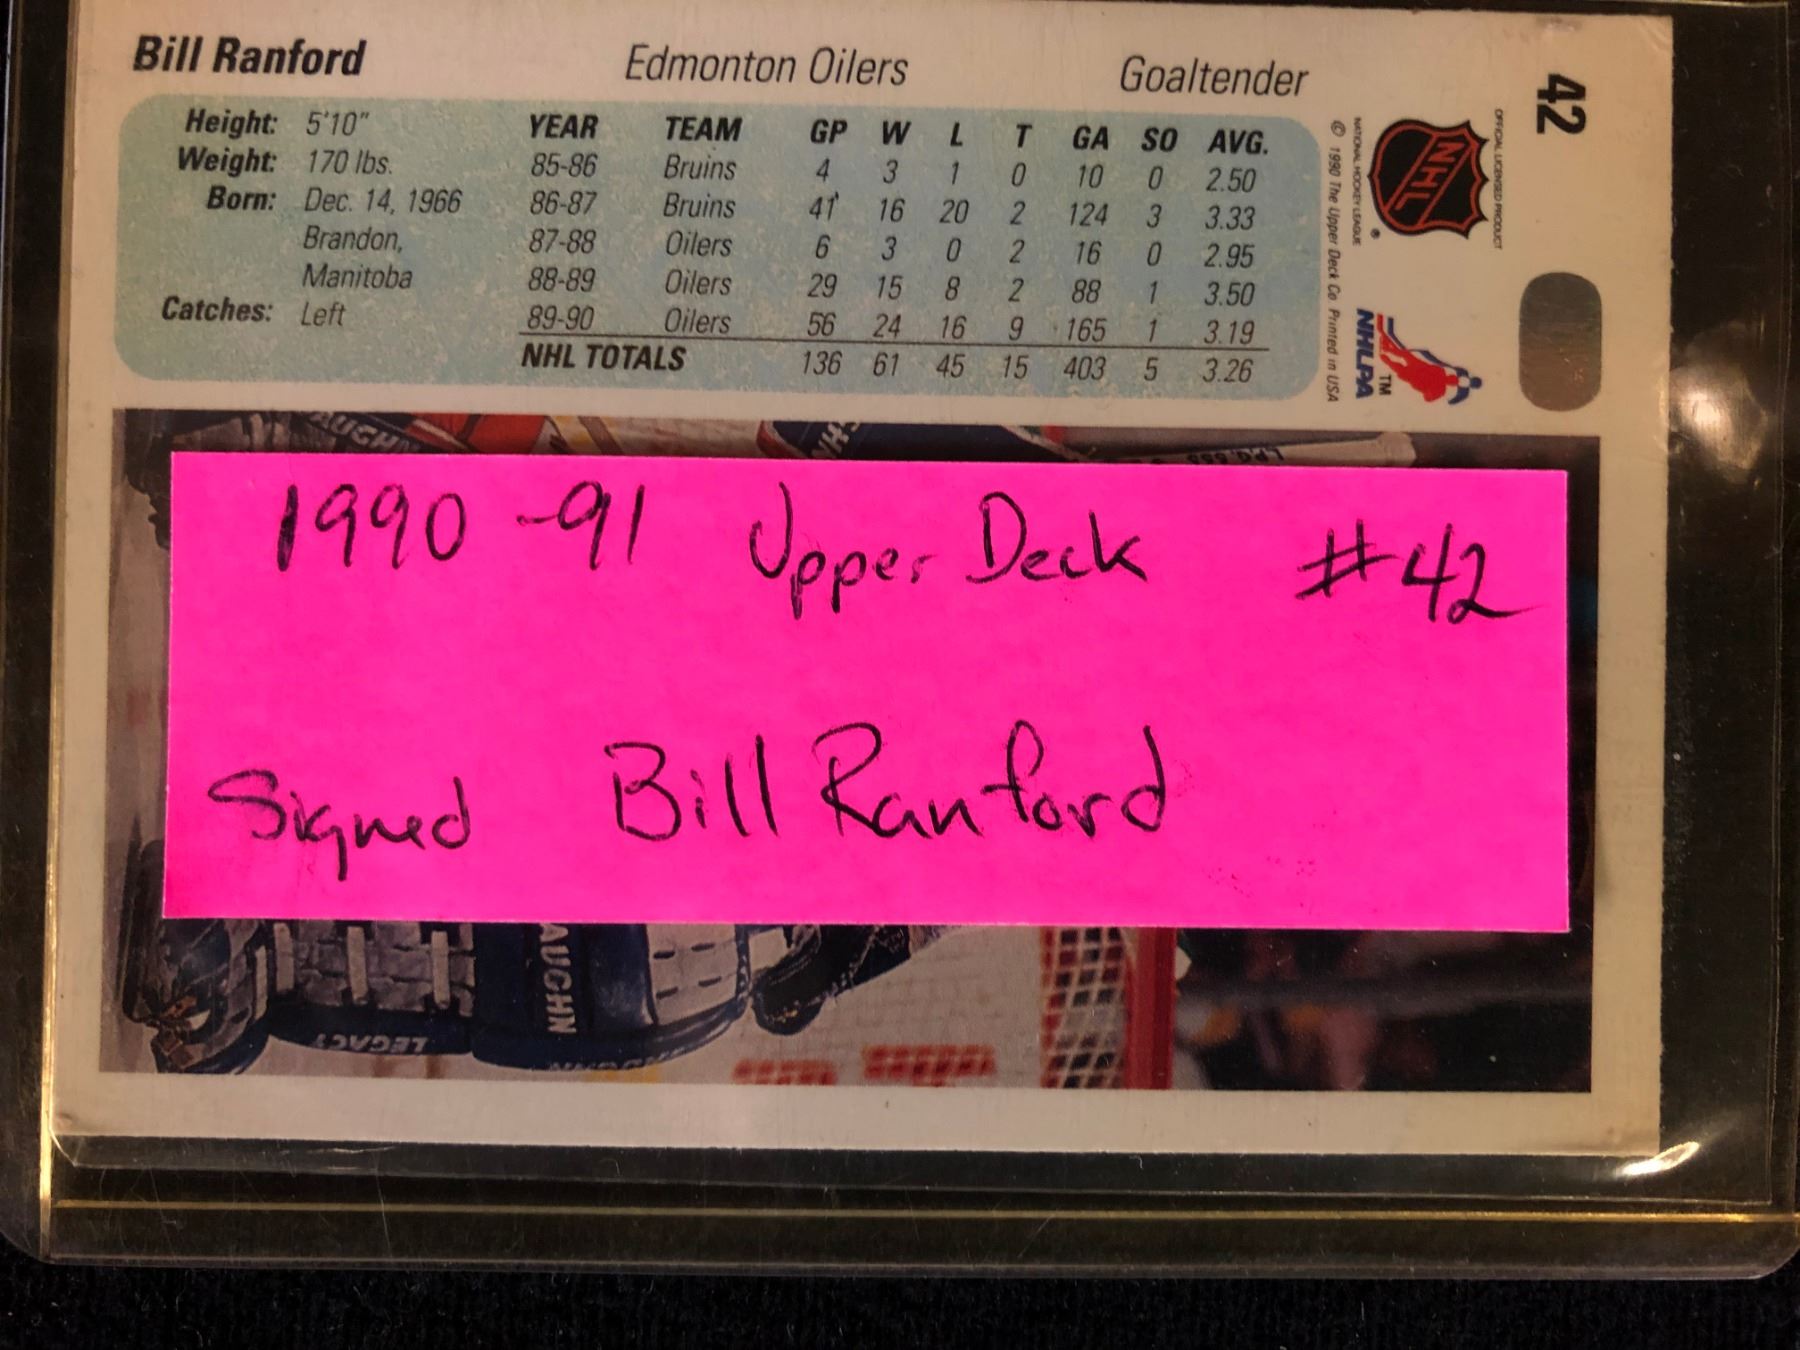 Bill Ranford Edmonton Oilers Goaltender
42
Height: 5'10"
Weight: 170 lbs.
Born: Dec. 14, 1966
Brandon,
Manitoba
Catches: Left
YEAR TEAM GP W L T GA SO AVG.
85-86 Bruins 4 3 1 0 10 0 2.50
86-87 Bruins 41 16 20 2 124 3 3.33
87-88 Oilers 6 3 0 2 16 0 2.95
88-89 Oilers 29 15 8 2 88 1 3.50
89-90 Oilers 56 24 16 9 165 1 3.19
NHL TOTALS 136 61 45 15 403 5 3.26
OFFICIAL LICENSED PRODUCT
NHL
®
NATIONAL HOCKEY LEAGUE
© 1990 The Upper Deck Co Printed in USA
NHLPA
TM
1990-91 Upper Deck #42
Signed Bill Ranford
AUGHN
LEGACY